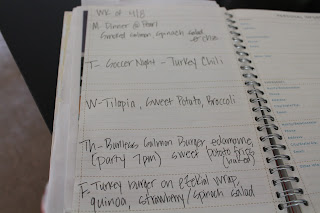 Wk of 4/8
M- Dinner @ Pearl
Grilled Salmon, spinach salad
T- Soccer Night - Turkey Chili
W- Tilapia, Sweet Potato, Broccoli
Th- Bunless Salmon Burger, edamame,
(party 7pm) sweet potato fries
(baked)
F- Turkey burger on ezekial wrap,
quinoa, strawberry/spinach salad